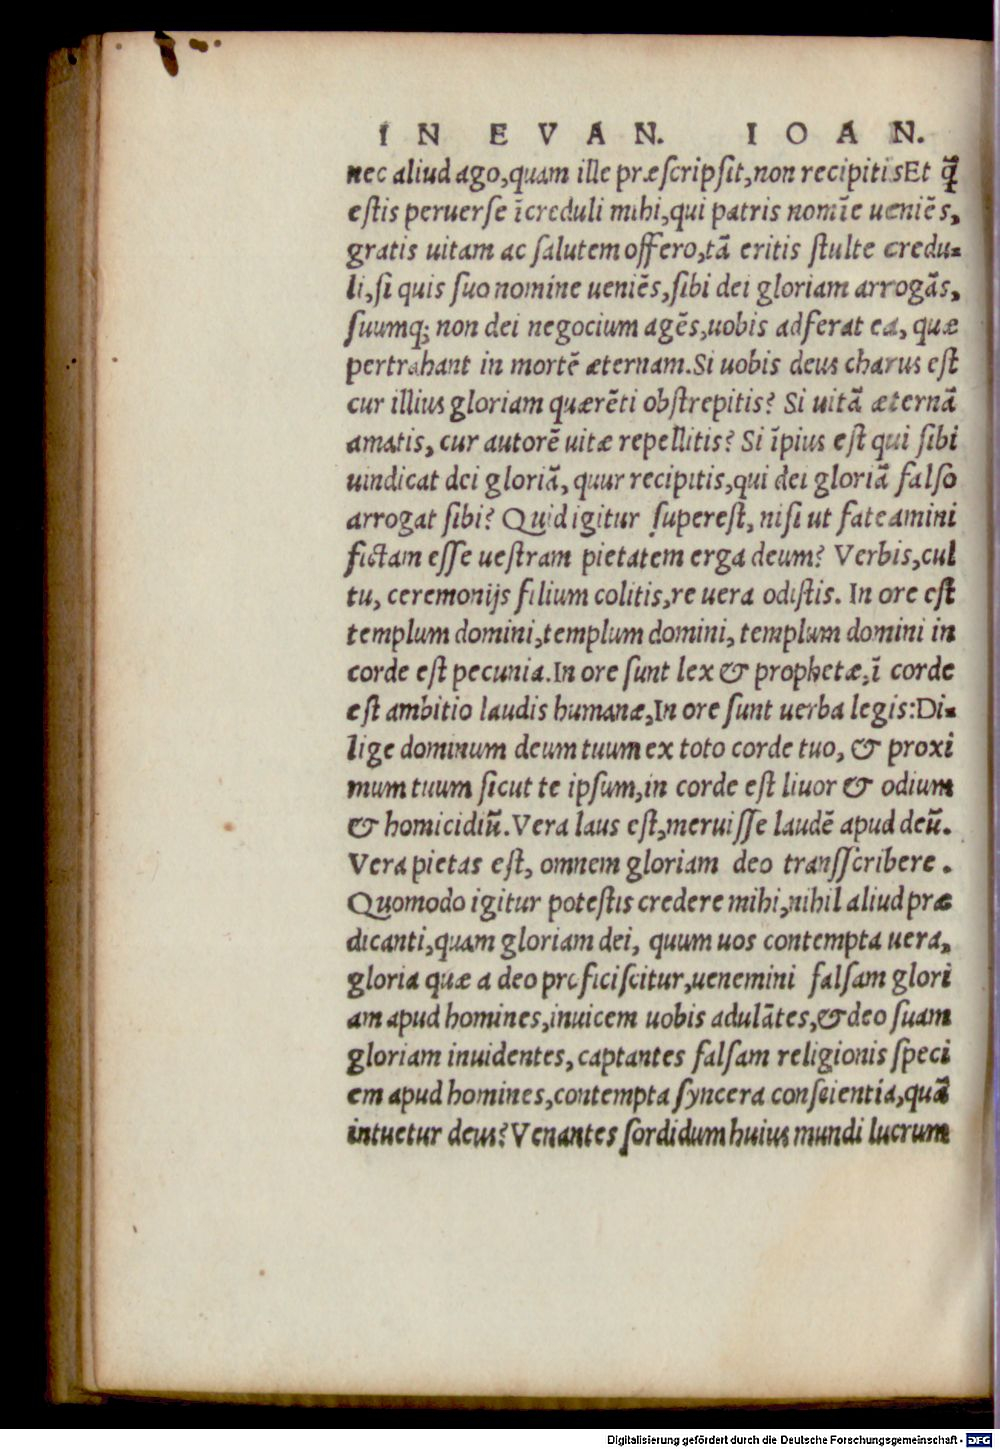 IN EVAN. IOAN.
nec aliud ago,quam ille præscripsit,non recipitisEt q̃
estis peruerse ĩcreduli mihi,qui patris nomĩe ueniẽs,
gratis uitam ac salutem offero,tã eritis stulte credu-
li,si quis suo nomine ueniẽs,sibi dei gloriam arrogãs,
suumq; non dei negocium agẽs,uobis adferat ea, quæ
pertrahant in mortẽ æternam.Si uobis deus charus est
cur illius gloriam quærẽti obstrepitis? Si uitã æternã
amatis, cur autorẽ uitæ repellitis? Si ĩpius est qui sibi
uindicat dei gloriã, quur recipitis,qui dei gloriã falso
arrogat sibi? Quid igitur superest, nisi ut fateamini
fictam esse uestram pietatem erga deum? Verbis,cul
tu, ceremonijs filium colitis,re uera odistis. In ore est
templum domini,templum domini, templum domini in
corde est pecunia.In ore sunt lex & prophetæ,ĩ corde
est ambitio laudis humanæ,In ore sunt uerba legis:Di-
lige dominum deum tuum ex toto corde tuo, & proxi
mum tuum sicut te ipsum,in corde est liuor & odium
& homicidiũ.Vera laus est,meruisse laudẽ apud deũ.
Vera pietas est, omnem gloriam deo transscribere .
Quomodo igitur potestis credere mihi,nihil aliud præ
dicanti,quam gloriam dei, quum uos contempta uera,
gloria quæ a deo proficiscitur,uenemini falsam glori
am apud homines,inuicem uobis adulãtes,& deo suam
gloriam inuidentes, captantes falsam religionis speci
em apud homines,contempta syncera conscientia,quã
intuetur deus? Venantes sordidum huius mundi lucrum
Digitalisierung gefördert durch die Deutsche Forschungsgemeinschaft - DFG